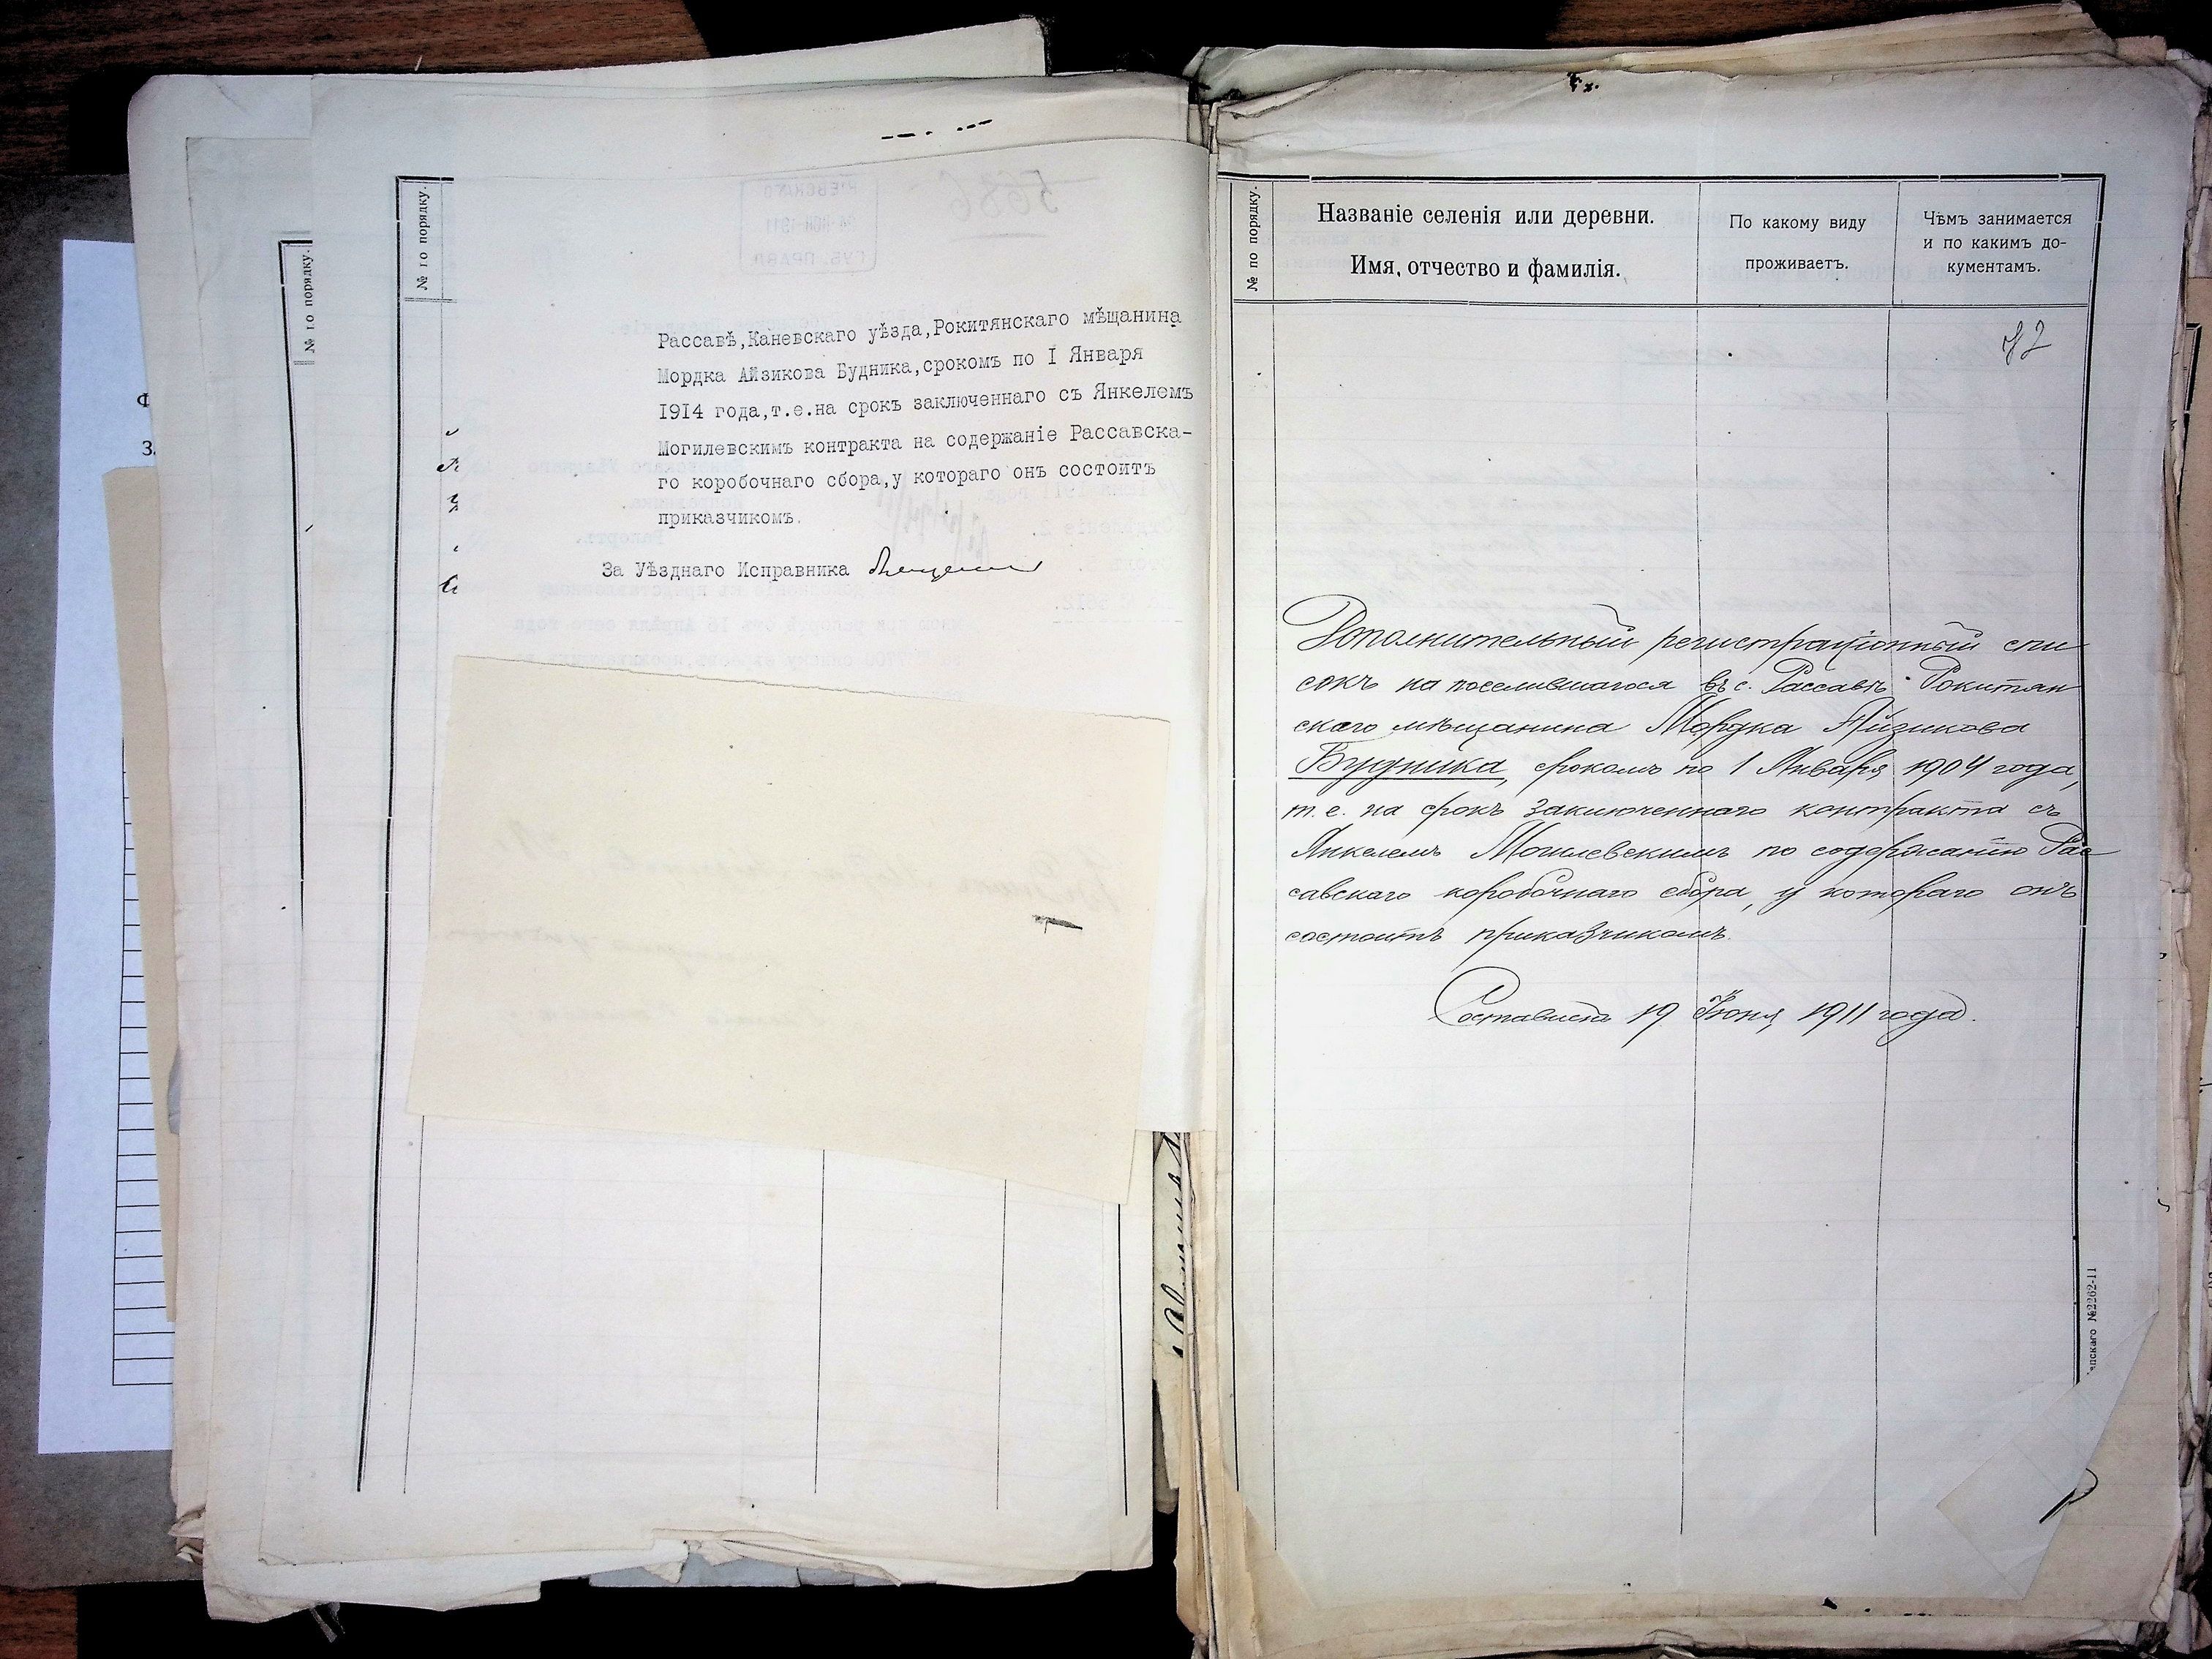 № по порядку.
№ по порядку.
Рассавѣ,Каневскаго уѣзда,Рокитянскаго мѣщанина
Мордка Айзикова Будника,срокомъ по I Января
1914 года,т.е.на срокъ заключеннаго съ Янкелемъ
Могилевскимъ контракта на содержаніе Рассавска-
го коробочнаго сбора,у котораго онъ состоитъ
приказчикомъ.
За Уѣзднаго Исправника
№ по порядку.
Названіе селенія или деревни.
Имя, отчество и фамилія.
По какому виду
проживаетъ.
Чѣмъ занимается
и по какимъ до-
кументамъ.
Дополнительный регистраціонный спи
сокъ на поселившагося въ с. Рассавѣ Рокитян
скаго мѣщанина Мордка Айзикова
Будника, срокомъ по 1 Января 1904 года,
т. е. на срокъ заключеннаго контракта съ
Янкелемъ Могилевскимъ по содержанію Рас
савскаго коробочнаго сбора, у котораго онъ
состоитъ приказчикомъ.
Составленъ 19 Іюня 1911 года.
№2262-11